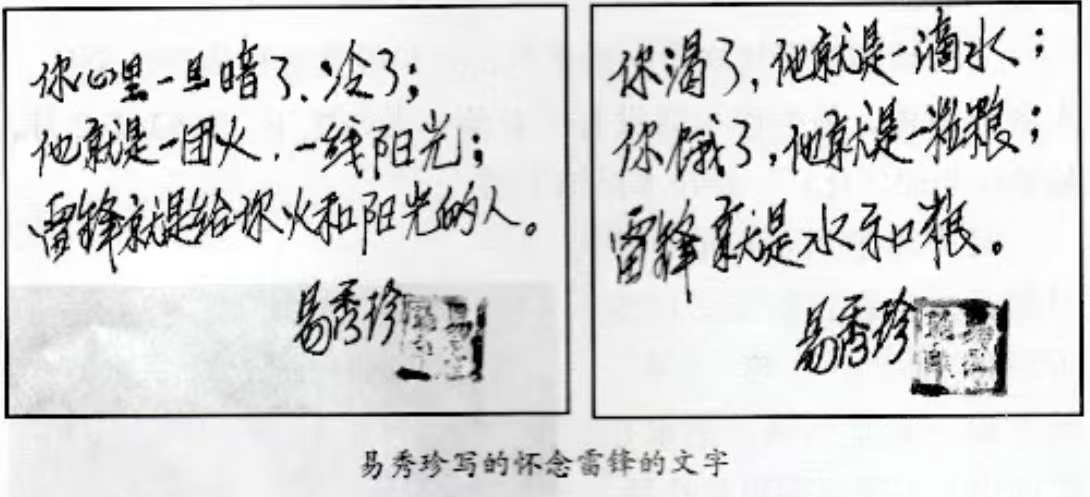 你心里一旦暗了、冷了；
他就是一团火，一线阳光；
雷锋就是给你火和阳光的人。
易秀珍
你渴了，他就是一滴水；
你饿了，他就是一粒粮；
雷锋就是水和粮。
易秀珍
易秀珍写的怀念雷锋的文字